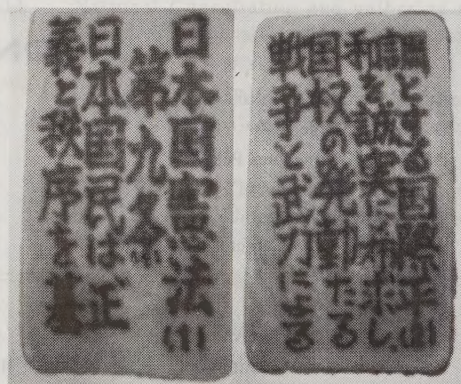 日本国憲法(1)
第九条(1)
日本国民は正
義と秩序を基
調とする国際平(2)
和を誠実に希求し、
国権の発動たる
戦争と武力による